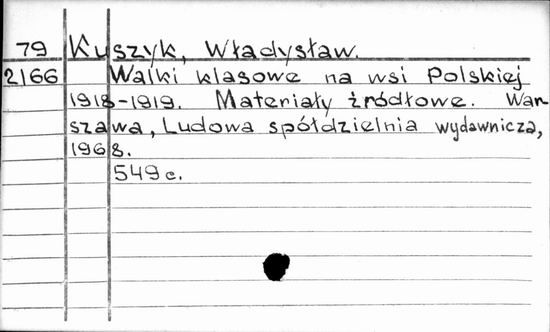 79 Kuszyk, Władysław.
2166 Walki klasowe na wsi Polskiej
1918-1919. Materiały źródłowe. War-
szawa, Ludowa spółdzielnia wydawnicza,
1968.
549 c.